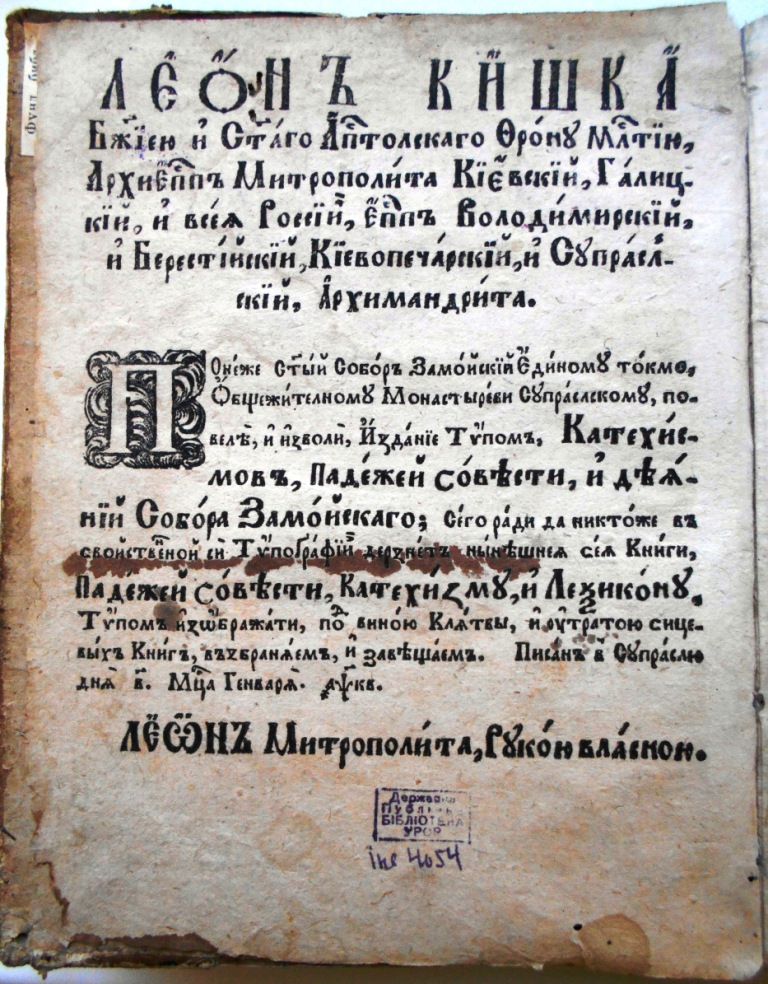 Фунд. библ
ЛЕѾНЪ КИШКА
Бж҃їею и Ст҃а́го Ап҃толскаго Ѳро́ну мл҃тїю,
Архиеп҃пъ Митрополи́та Кїе́вскїй, Га́лиц-
кїй, и всея̀ Россїй, Еп҃пъ Володи́мирскїй,
и Берестїйскїй, Кїевопеча́рскїй, и Супра́сл-
скїй, Архимандри́та.
Поне́же Ст҃ый Собо́ръ Замо́йскїй Еди́ному то́кмѡ,
Общежи́телному Монастыре́ви Супраслскому, по-
велѣ̀, и изволѝ, Изда́нїе Тѵ́помъ, Катехи́с-
мовъ, Паде́жей со́вѣсти, и дѣѧ́-
нїй Собо́ра Замо́йскаго; Сегѡ̀ ради да никто́же въ
сво́йственной си Тѵпогра́фїй дерзне́тъ ны́нѣшнея сея̀ Кни́ги,
Паде́жей со́вѣсти, Катехи́зму, и Леѯико́ну,
Тѵ́помъ изѡбража́ти, по́д вино́ю Кля́твы, и оутра́тою сице-
вы́хъ Кни́гъ, възбраня́емъ, и завѣща́емъ. Пи́санъ в Су́праслю
дня̀ в҃. Мц҃а Генва́рѧ. аѱ҃кв.
ЛЕѾНЪ Митрополи́та, Руко́ю вла́сною.
Державна
Публічна
БІБЛІОТЕКА
УРСР
Інв 4054